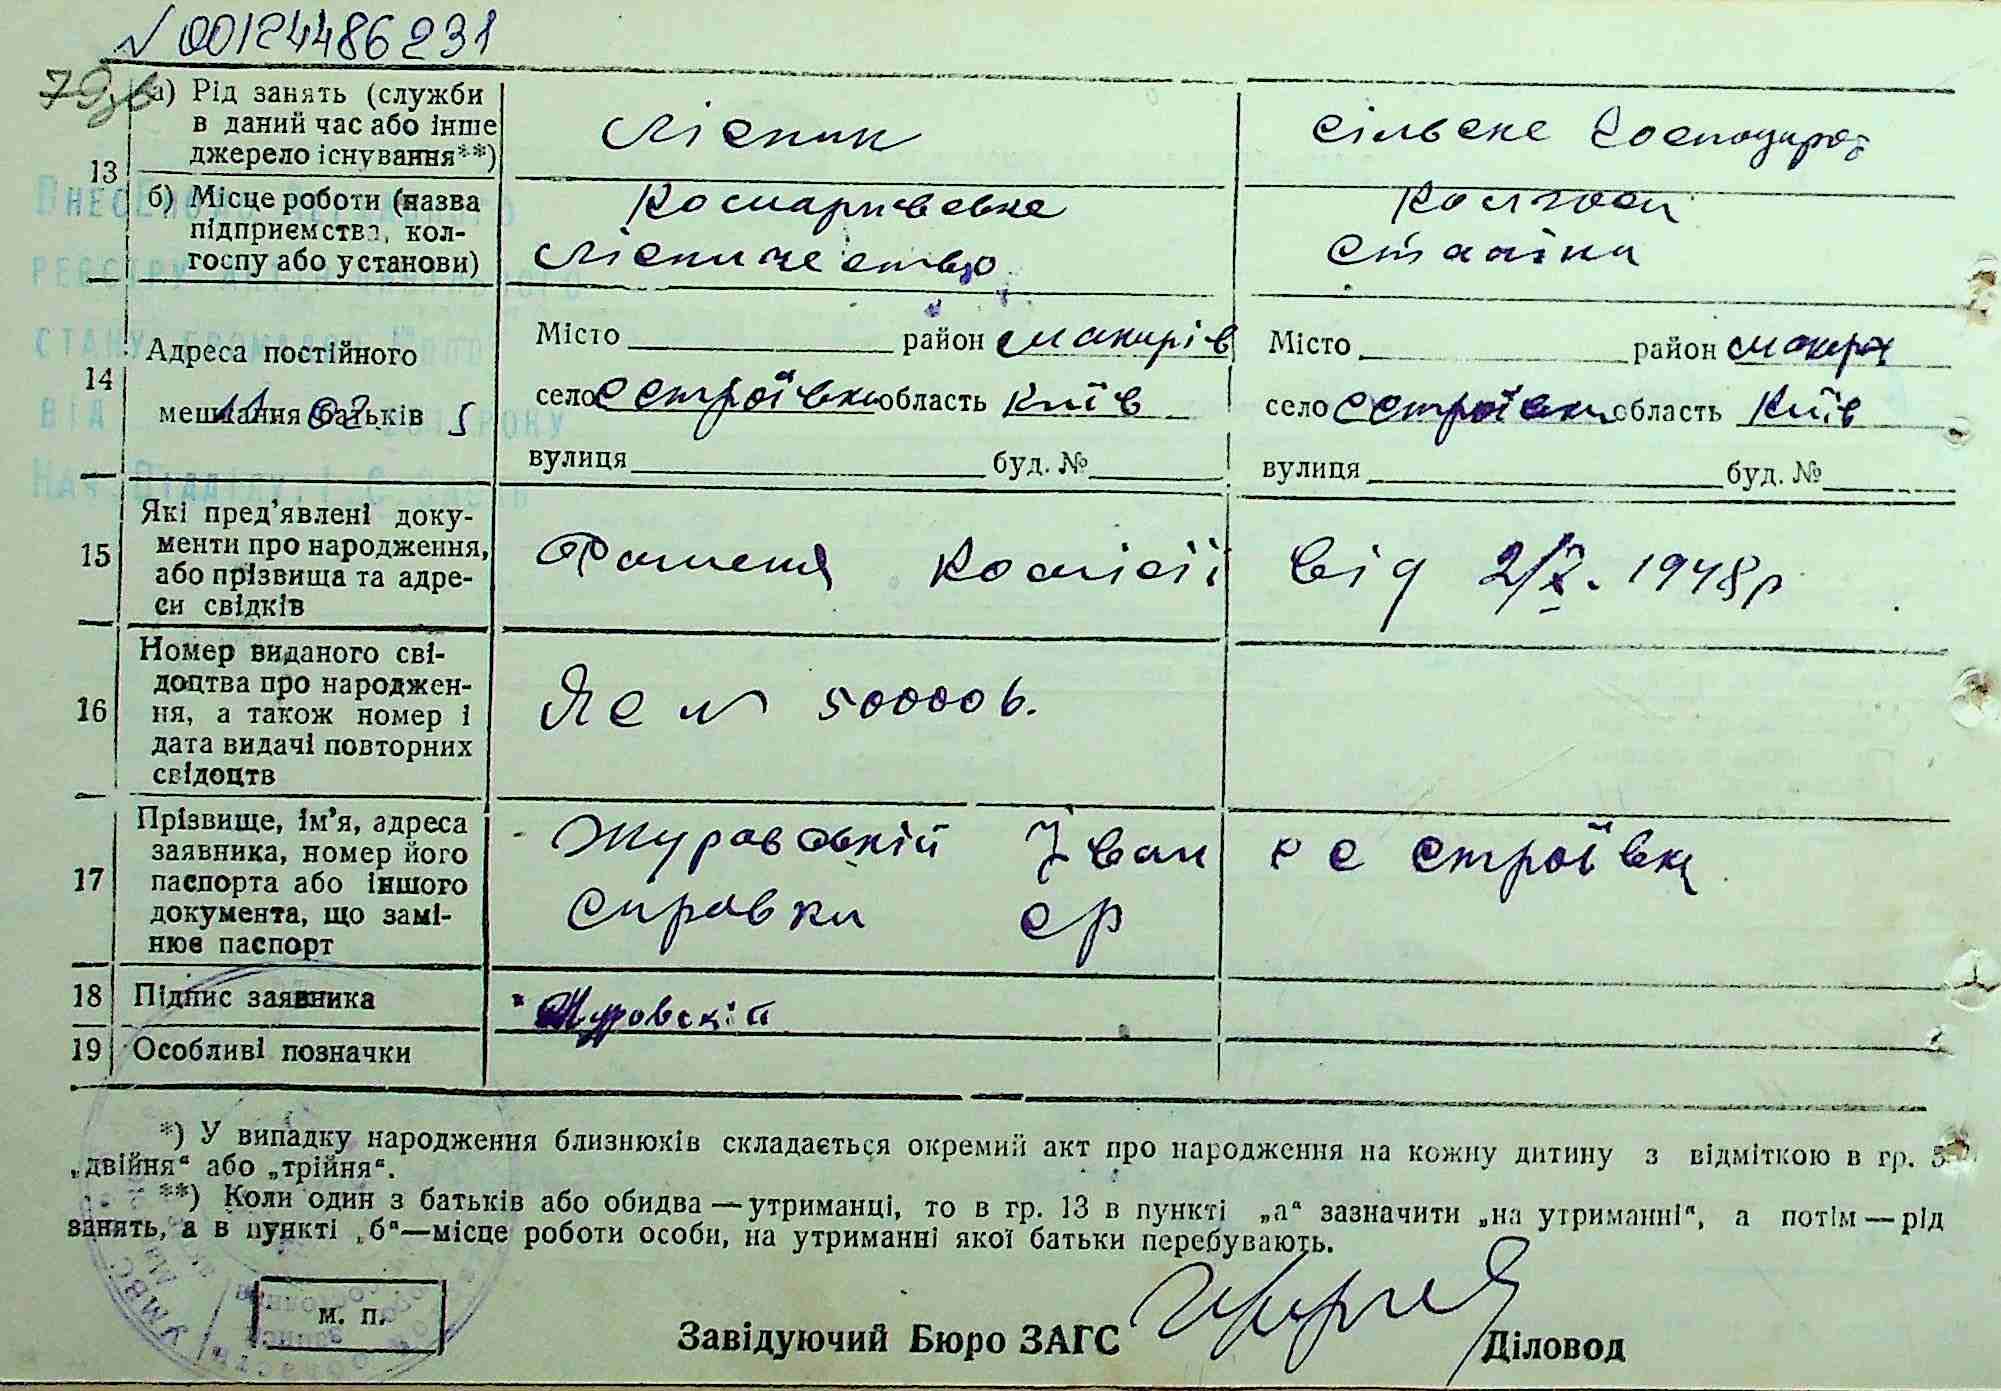 № 00124486231
79зв
13 а) Рід занять (служби в даний час або інше джерело існування**)
лісник
сільске господар
б) Місце роботи (назва підприємства, колгоспу або установи)
лісничество
Колгосп
Сталіна
14 Адреса постійного мешкання батьків
Місто район Макарів
село Єстроївка область Київ
вулиця буд. №
Місто район Макарів
село Єстроївка область Київ
вулиця буд. №
15 Які пред'явлені документи про народження, або прізвища та адреси свідків
комісії від 2/X. 1948р
16 Номер виданого свідоцтва про народження, а також номер і дата видачі повторних свідоцтв
ЯС № 500006.
17 Прізвище, ім'я, адреса заявника, номер його паспорта або іншого документа, що замінює паспорт
Журавський Іван с Єстроївка
справка ср
18 Підпис заявника
Журовскій
19 Особливі позначки
*) У випадку народження близнюків складається окремий акт про народження на кожну дитину з відміткою в гр. 5
„двійня“ або „трійня“.
**) Коли один з батьків або обидва — утриманці, то в гр. 13 в пункті „а“ зазначити „на утриманні“, а потім — рід
занять, а в пункті „б“—місце роботи особи, на утриманні якої батьки перебувають.
м. п.
Завідуючий Бюро ЗАГС
Діловод